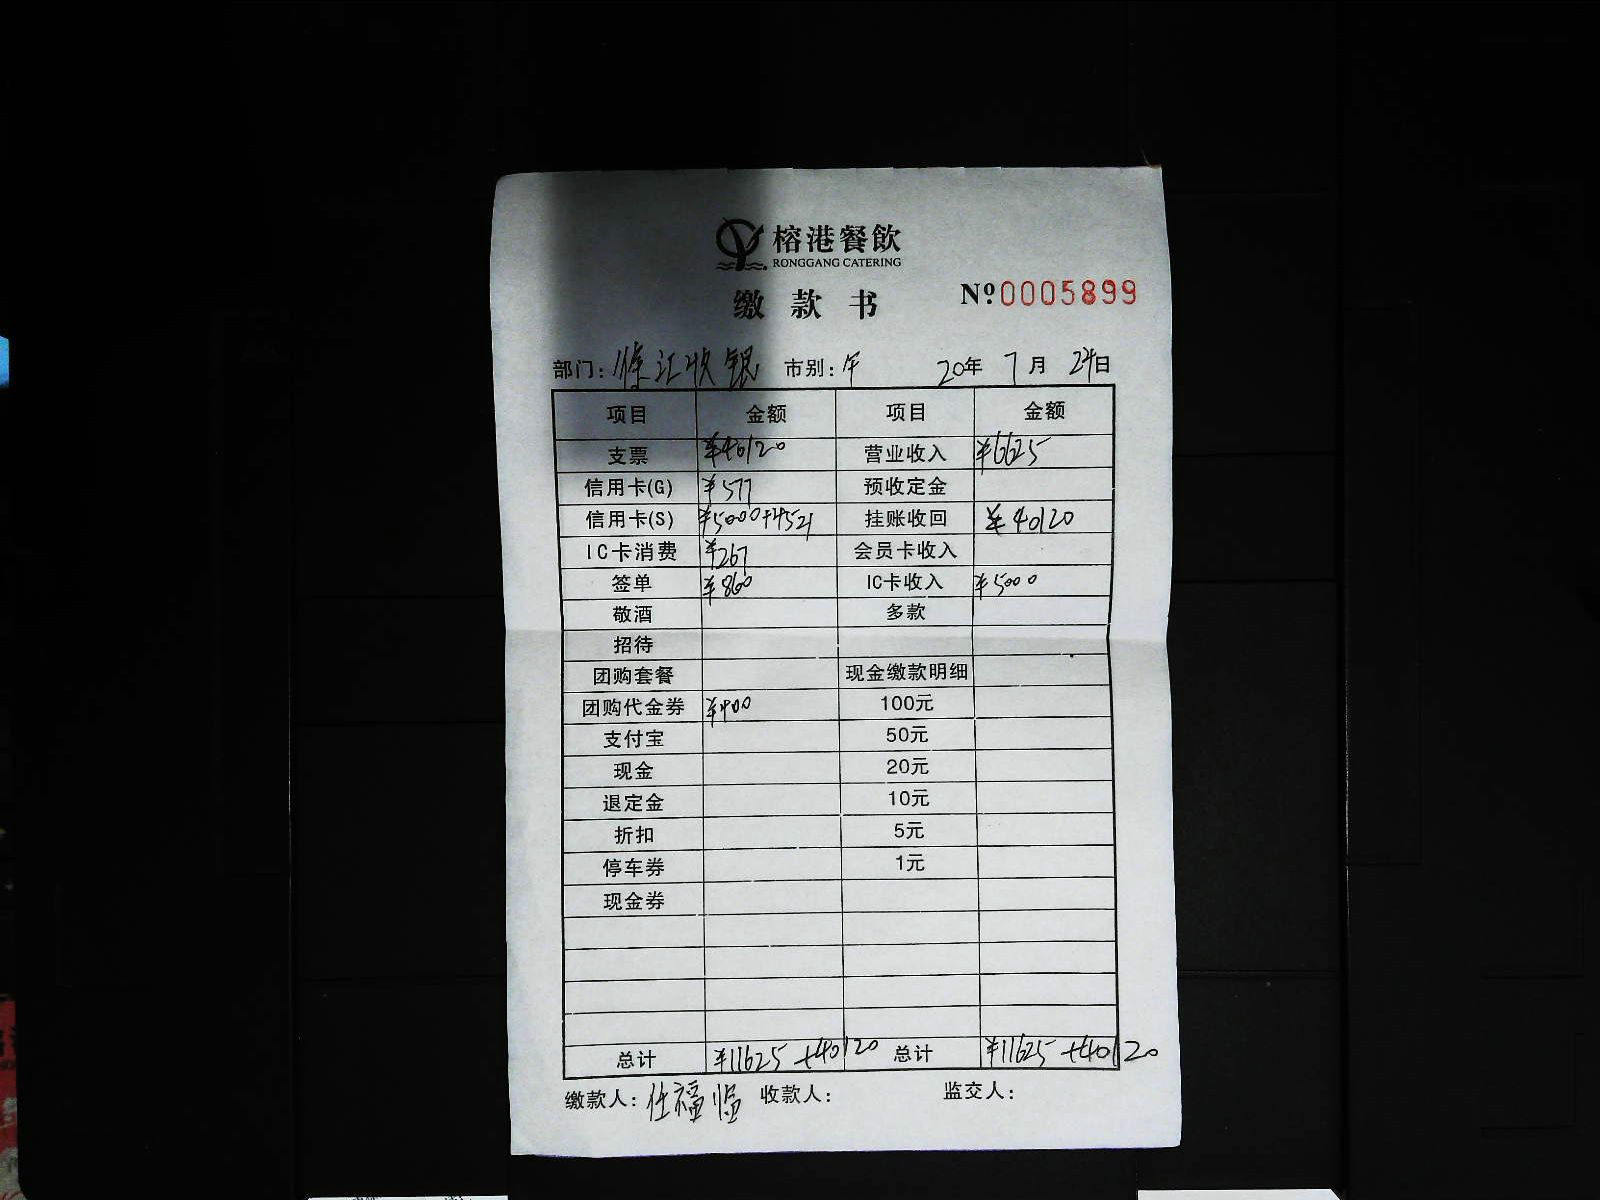 榕港餐飲
RONGGANG CATERING
缴款书 Nº0005899
部门: 滁江收银 市别: 午 20年 7月 24日
项目 金额 项目 金额
支票 ¥40120 营业收入 ¥6625
信用卡(G) ¥577 预收定金
信用卡(S) ¥5000+4521 挂账收回 ¥40120
IC卡消费 ¥267 会员卡收入
签单 ¥860 IC卡收入 ¥5000
敬酒 多款
招待
团购套餐 现金缴款明细
团购代金券 ¥400 100元
支付宝 50元
现金 20元
退定金 10元
折扣 5元
停车券 1元
现金券
总计 ¥11625+40120 总计 ¥11625+40120
缴款人: 任福临 收款人: 监交人: